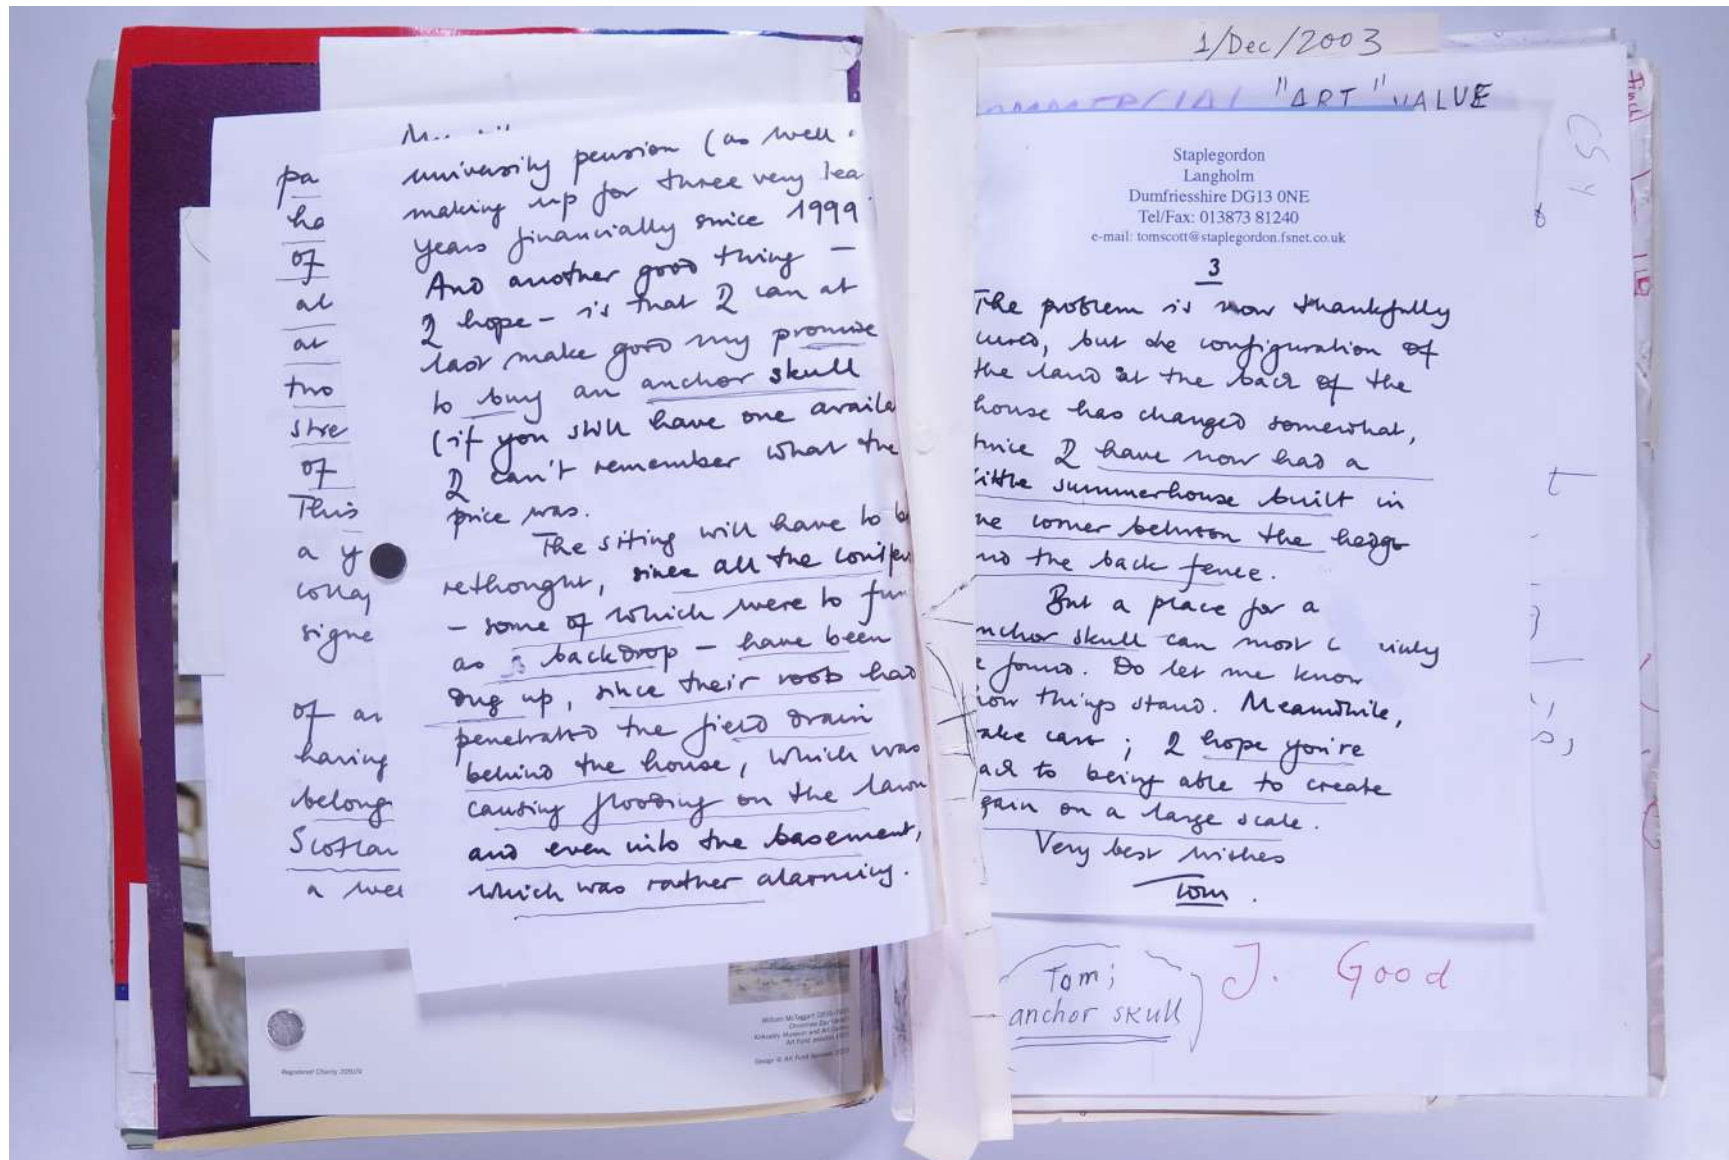 1/Dec/2003
COMMERCIAL "ART" VALUE
pa
ho
of
al
at
two
stre
of
This
a y
collag
signe
of an
having
belong
Scotlan
a wee
university pension (as well
making up for three very lea
years financially since 1999
And another good thing –
I hope – is that I can at
last make good my promise
to buy an anchor skull
(if you still have one availa
I can't remember what the
price was.
The siting will have to b
rethought, since all the conifer
– some of which were to fun
as a backdrop – have been
dug up, since their roots had
penetrated the field drain
behind the house, which was
causing flooding on the lawn
and even into the basement,
which was rather alarming.
William McTaggart
Registered Charity 209174
Staplegordon
Langholm
Dumfriesshire DG13 0NE
Tel/Fax: 013873 81240
e-mail: tomscott@staplegordon.fsnet.co.uk
3
The problem is now thankfully
cured, but the configuration of
the land at the back of the
house has changed somewhat,
since I have now had a
little summerhouse built in
he corner between the hedge
nd the back fence.
But a place for a
nchor skull can most
e found. Do let me know
how things stand. Meanwhile,
ake care; I hope you're
ack to being able to create
gain on a large scale.
Very best wishes
Tom.
Tom;
anchor skull
J. Good